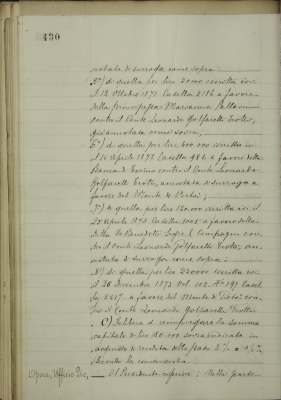 430
notata di surroga come sopra;
5°) di quella per lire 30000 iscritta il
il 12 Ottobre 1871 Casella 2186 a favore
della Principessa Massimo Pallavicini
contro il Conte Leonardo Golfarelli Trotti,
già annotata come sopra;
6°) di quella per lire 600 000 iscritta
il 24 Aprile 1872 Casella 986 a favore della
Banca di Torino contro il Conte Leonardo
Golfarelli Trotti, annotata di surroga a
favore del Monte di Pietà;
7°) di quella per lire 120000 iscritta il
25 Aprile 1872 Casella 1005 a favore della
Ditta De Benedetti Segre e Compagni con-
tro il Conte Leonardo Golfarelli Trotti, an-
notata di surroga come sopra;
8°) di quella per lire 230000 iscritta
il 26 Decembre 1872 Vol. 102 N° 197 Casel-
la 3217 a favore del Monte di Pietà con-
tro il Conte Leonardo Golfarelli Trotti.
C) Delibera di reimpiegare la somma
capitale di lire 180 000 sovra indicata in
acquisto di rendita dello Stato 5 % o 4 ½ %
secondo la convenienza.
Opera, Ufficio Pio, Il Presidente riferisce: Nella parte